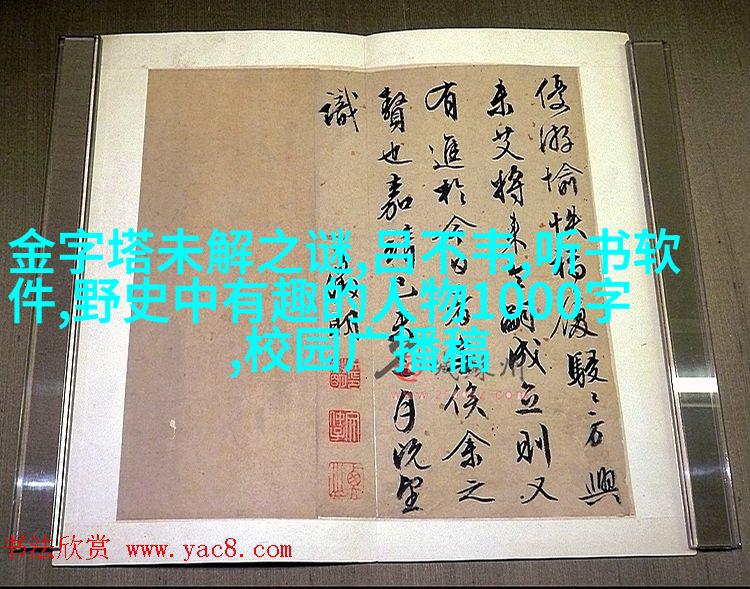 優游愉快福履駸駸方興
未艾將來令嗣成立則又
有進於今日者
俟余之
贅也嘉
月既望
識
金字塔未解之谜,吕不韦,听书软
件,野史中有趣的人物1000字
,校园广播稿
书法欣赏 www.yac8.com